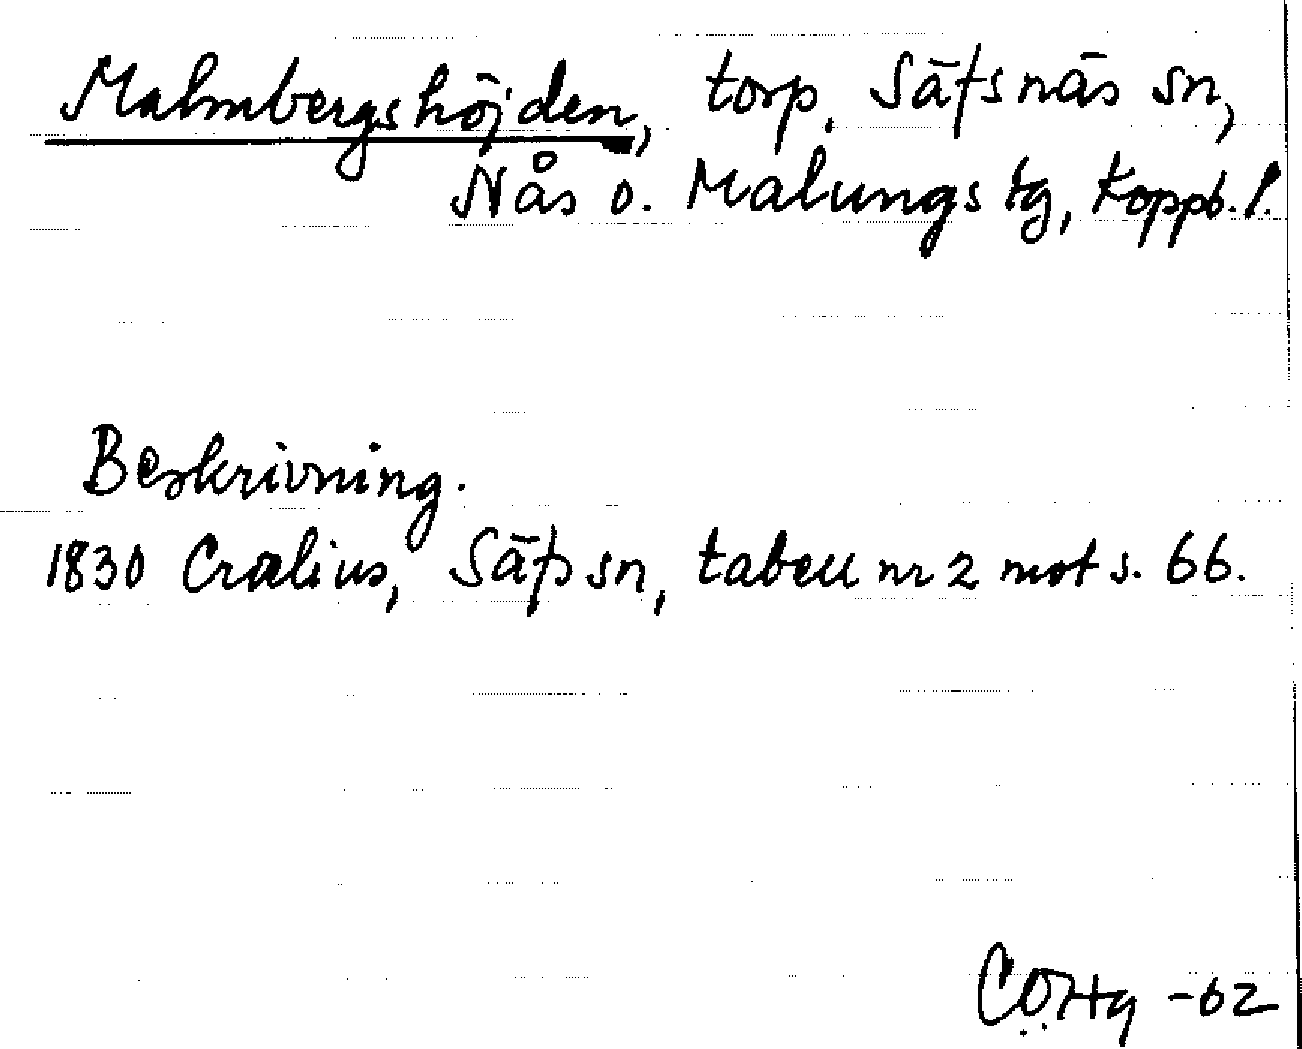 Malmbergshöjden, torp, Säfsnäs sn,
Nås o. Malungs tg, Koppb. l.
Beskrivning.
1830 Cralius, Säfs sn, tabell nr 2 mot s. 66.
-62